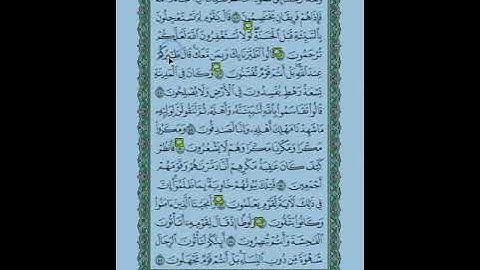 فَإِذَا هُمْ فَرِيقَانِ يَخْتَصِمُونَ قَالَ يَٰقَوْمِ لِمَ تَسْتَعْجِلُونَ
بِٱلسَّيِّئَةِ قَبْلَ ٱلْحَسَنَةِ لَوْلَا تَسْتَغْفِرُونَ ٱللَّهَ لَعَلَّكُمْ
تُرْحَمُونَ قَالُوا۟ ٱطَّيَّرْنَا بِكَ وَبِمَن مَّعَكَ قَالَ طَٰٓئِرُكُمْ
عِندَ ٱللَّهِ بَلْ أَنتُمْ قَوْمٌ تُفْتَنُونَ وَكَانَ فِى ٱلْمَدِينَةِ
تِسْعَةُ رَهْطٍ يُفْسِدُونَ فِى ٱلْأَرْضِ وَلَا يُصْلِحُونَ
قَالُوا۟ تَقَاسَمُوا۟ بِٱللَّهِ لَنُبَيِّتَنَّهُۥ وَأَهْلَهُۥ ثُمَّ لَنَقُولَنَّ لِوَلِيِّهِۦ
مَا شَهِدْنَا مَهْلِكَ أَهْلِهِۦ وَإِنَّا لَصَٰدِقُونَ وَمَكَرُوا۟
مَكْرًا وَمَكَرْنَا مَكْرًا وَهُمْ لَا يَشْعُرُونَ فَٱنظُرْ
كَيْفَ كَانَ عَٰقِبَةُ مَكْرِهِمْ أَنَّا دَمَّرْنَٰهُمْ وَقَوْمَهُمْ
أَجْمَعِينَ فَتِلْكَ بُيُوتُهُمْ خَاوِيَةًۢ بِمَا ظَلَمُوٓا۟ إِنَّ
فِى ذَٰلِكَ لَءَايَةً لِّقَوْمٍ يَعْلَمُونَ وَأَنجَيْنَا ٱلَّذِينَ ءَامَنُوا۟
وَكَانُوا۟ يَتَّقُونَ وَلُوطًا إِذْ قَالَ لِقَوْمِهِۦٓ أَتَأْتُونَ
ٱلْفَٰحِشَةَ وَأَنتُمْ تُبْصِرُونَ أَئِنَّكُمْ لَتَأْتُونَ ٱلرِّجَالَ
شَهْوَةً مِّن دُونِ ٱلنِّسَآءِ بَلْ أَنتُمْ قَوْمٌ تَجْهَلُونَ